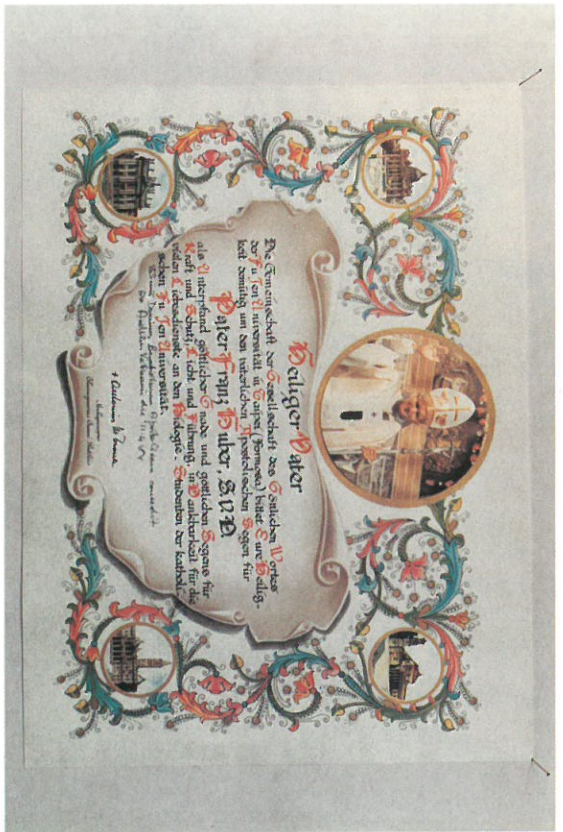 Heiliger Vater
Die Gemeinschaft der Gesellschaft des Göttlichen Wortes
der Fu Jen Universität in Taipei (Formosa) bittet Eure Heilig-
keit demütig um den väterlichen Apostolischen Segen für
Pater Franz Huber, S.V.D.
als Unterpfand göttlicher Gnade und göttlichen Segens für
Kraft und Schutz, Licht und Führung, in Dankbarkeit für die
vielen Liebesdienste an den Biologie-Studenten der katholi-
schen Fu Jen Universität.